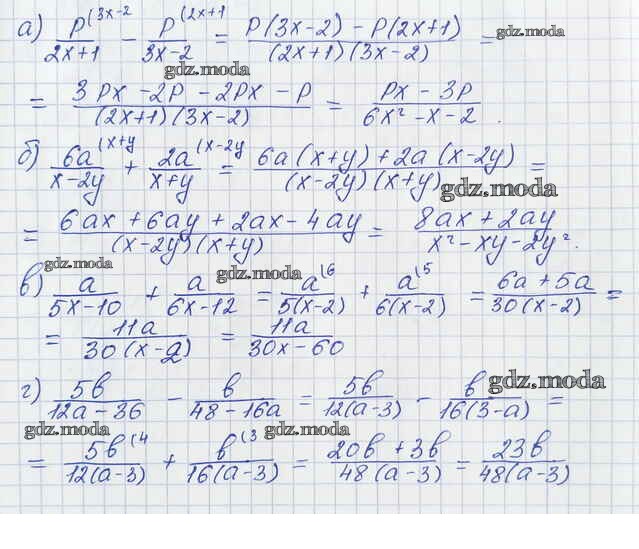 а) p(3x-2 / 2x+1 - p(2x+1 / 3x-2 = p(3x-2) - p(2x+1) / (2x+1)(3x-2) = gdz.moda
gdz.moda
= 3px - 2p - 2px - p / (2x+1)(3x-2) = px - 3p / 6x² - x - 2 .
б) 6a(x+y / x-2y + 2a(x-2y / x+y = 6a(x+y) + 2a(x-2y) / (x-2y)(x+y) =
gdz.moda
= 6ax + 6ay + 2ax - 4ay / (x-2y)(x+y) = 8ax + 2ay / x² - xy - 2y² .
gdz.moda gdz.moda
в) a / 5x-10 + a / 6x-12 = a(6 / 5(x-2) + a(5 / 6(x-2) = 6a + 5a / 30(x-2) =
= 11a / 30(x-2) = 11a / 30x-60
г) 5b / 12a-36 - b / 48-16a = 5b / 12(a-3) - b / 16(3-a) = gdz.moda
gdz.moda gdz.moda
= 5b(4 / 12(a-3) + b(3 / 16(a-3) = 20b + 3b / 48(a-3) = 23b / 48(a-3)